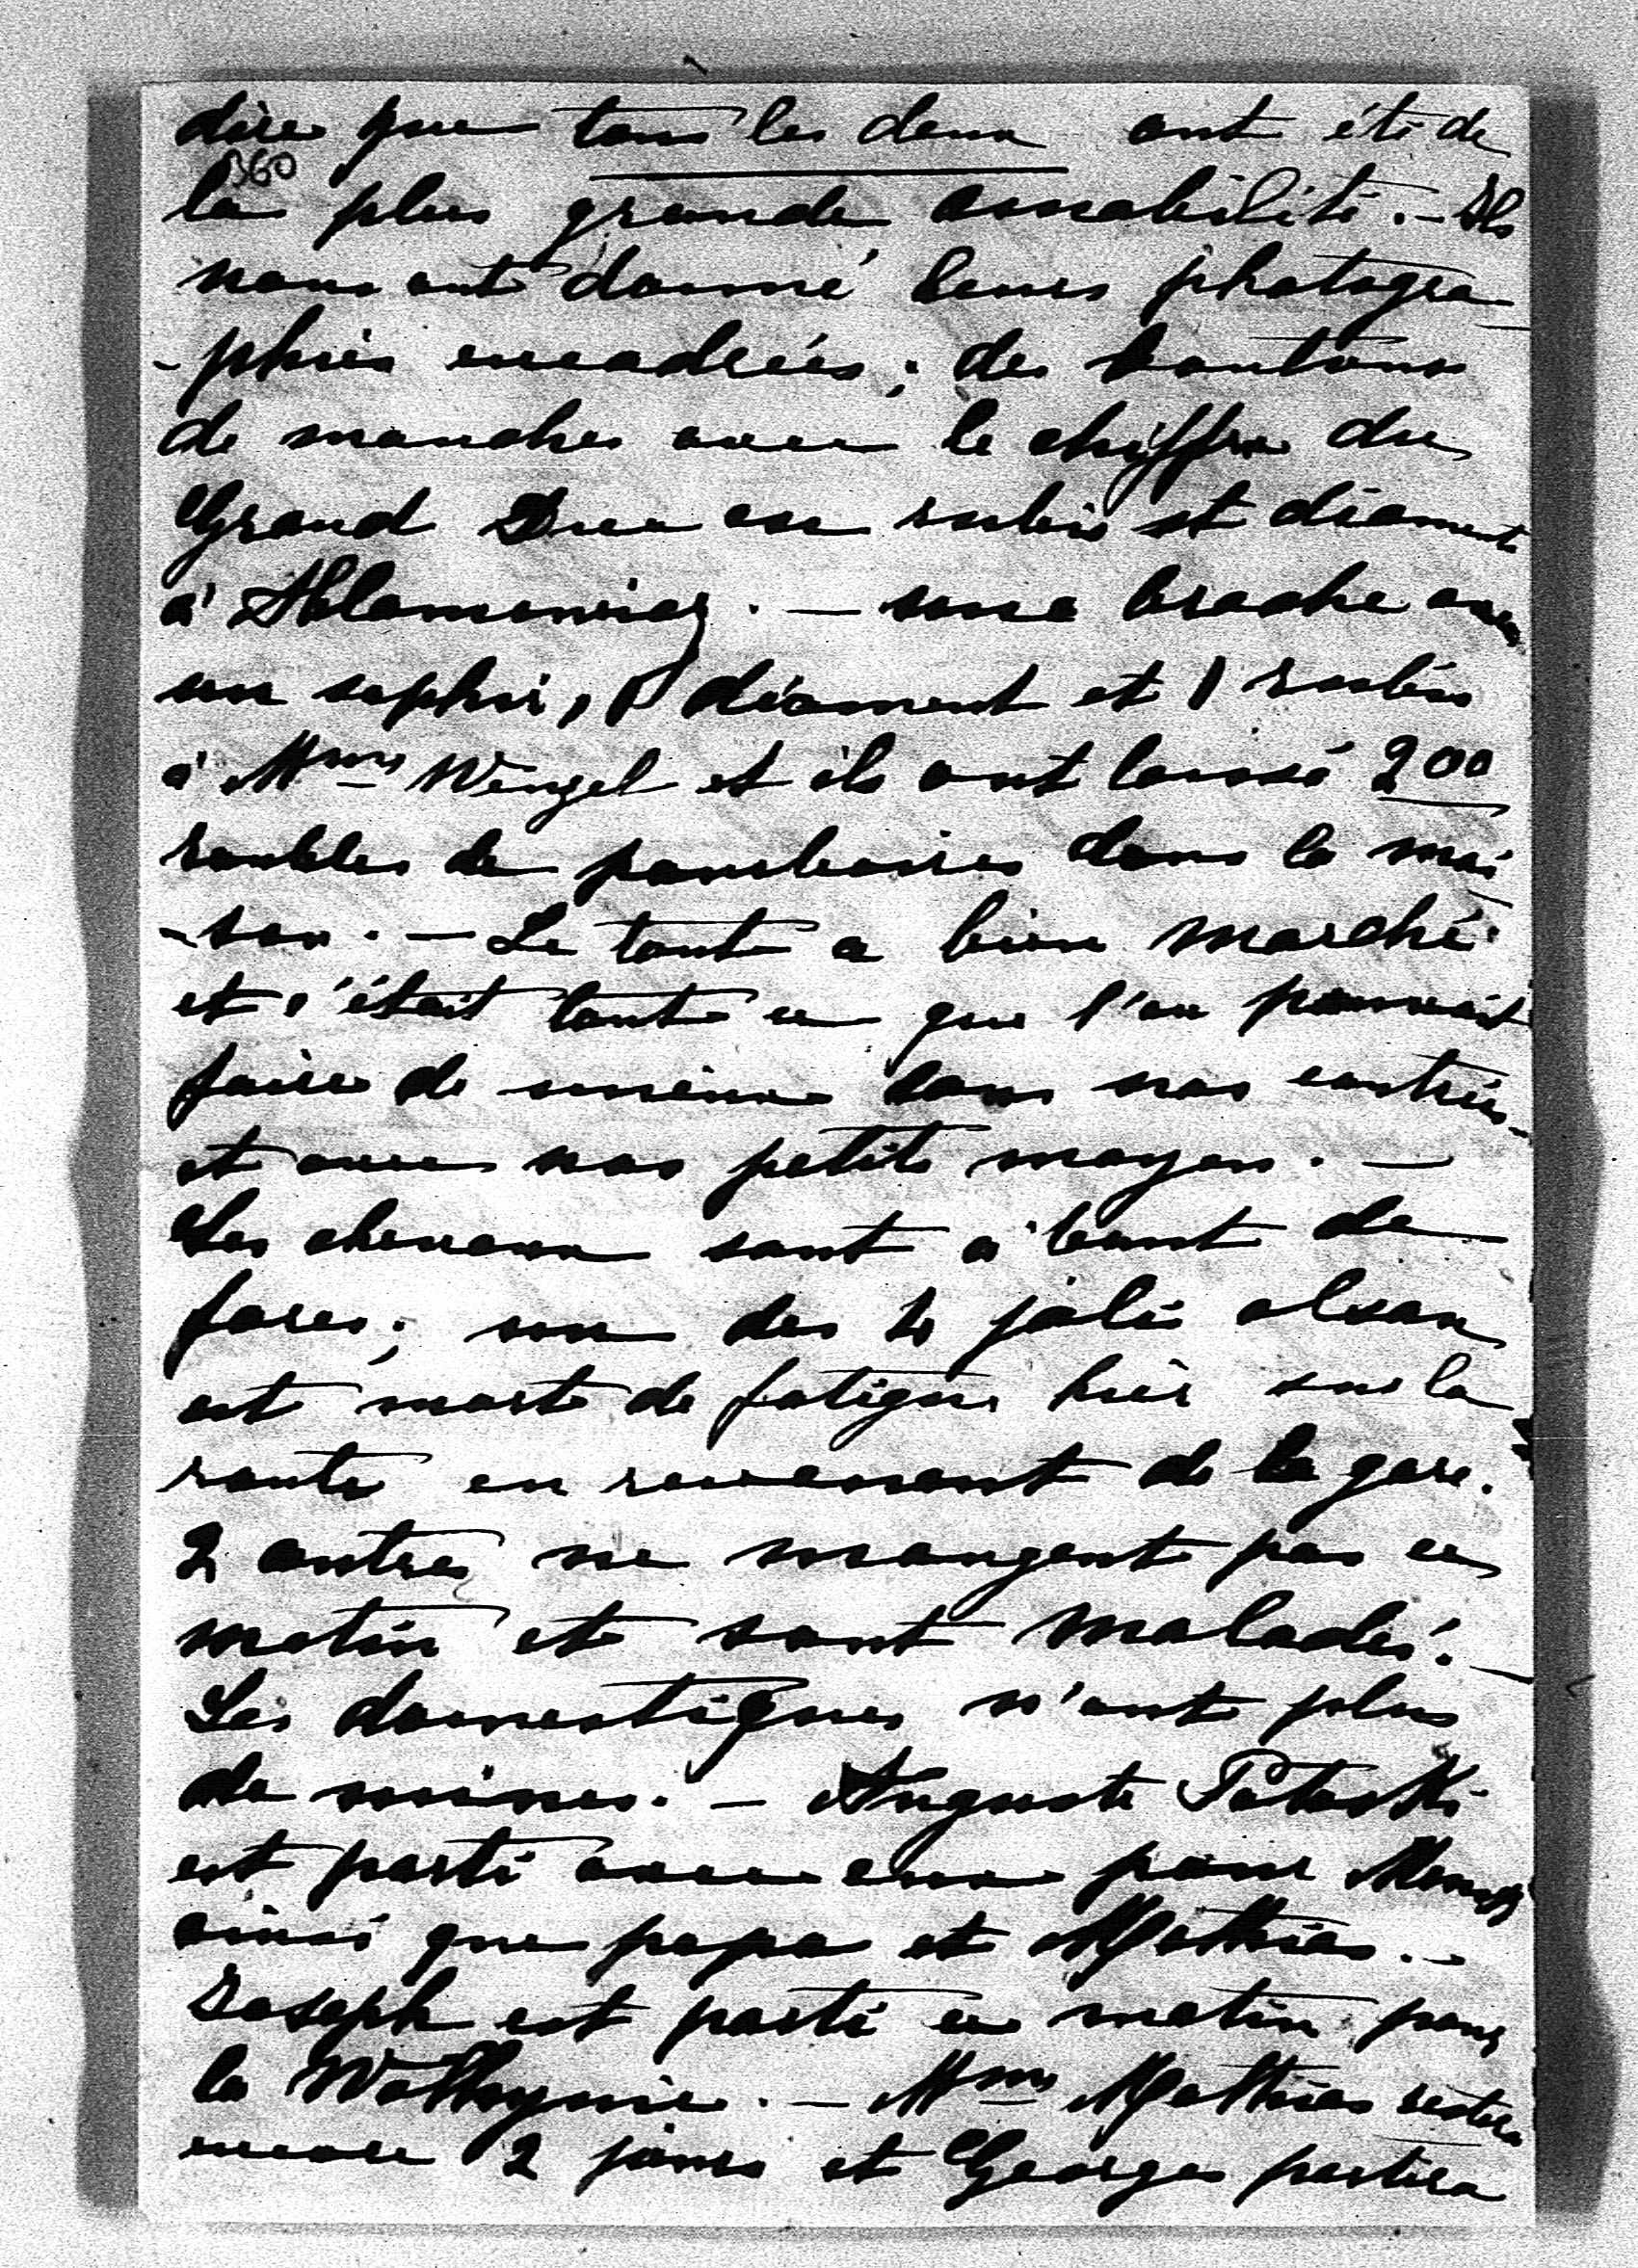 dire que tous les deux ont été de
360
la plus grande amabilité. – Ils
nous ont donné leurs photogra
-phies encadrées; des boutons
de manches avec le chiffre du
Grand Duc en rubis et diamants
à Ablamowicz. – une broche avec
un saphir, 1 diamant et 1 rubis
à Mme Wenzel et ils ont laissé 200
roubles de pourboires dans la mai
-son. – Le tout a bien marché
et c'était tout ce que l'on pouvait
faire de mieux dans nos contrées
et avec nos petits moyens. –
Les chevaux sont à bout de
forces; un des 4 jolis alsan
est mort de fatigue hier sur la
route en revenant de la gare.
2 autres ne mangent pas ce
matin et sont malades. –
Les domestiques n'ont plus
de mines. – Auguste Potocki
est parti avec eux pour
ainsi que papa et Mathias. –
Joseph est parti ce matin pour
la Wolhynie. – Mme Mathias restera
encore 2 jours et Georges partira